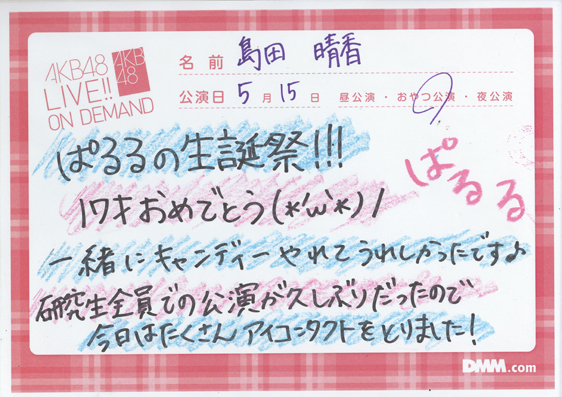 AKB48
LIVE!!
ON DEMAND
AKB
48
名前 島田 晴香
公演日 5月15日 昼公演・おやつ公演・夜公演
ぱるるの生誕祭!!!
17才おめでとう(*'ω`*)ノ
ぱるる
一緒にキャンディーやれてうれしかったです♪
研究生全員での公演が久しぶりだったので
今日はたくさんアイコンタクトをとりました!
DMM.com